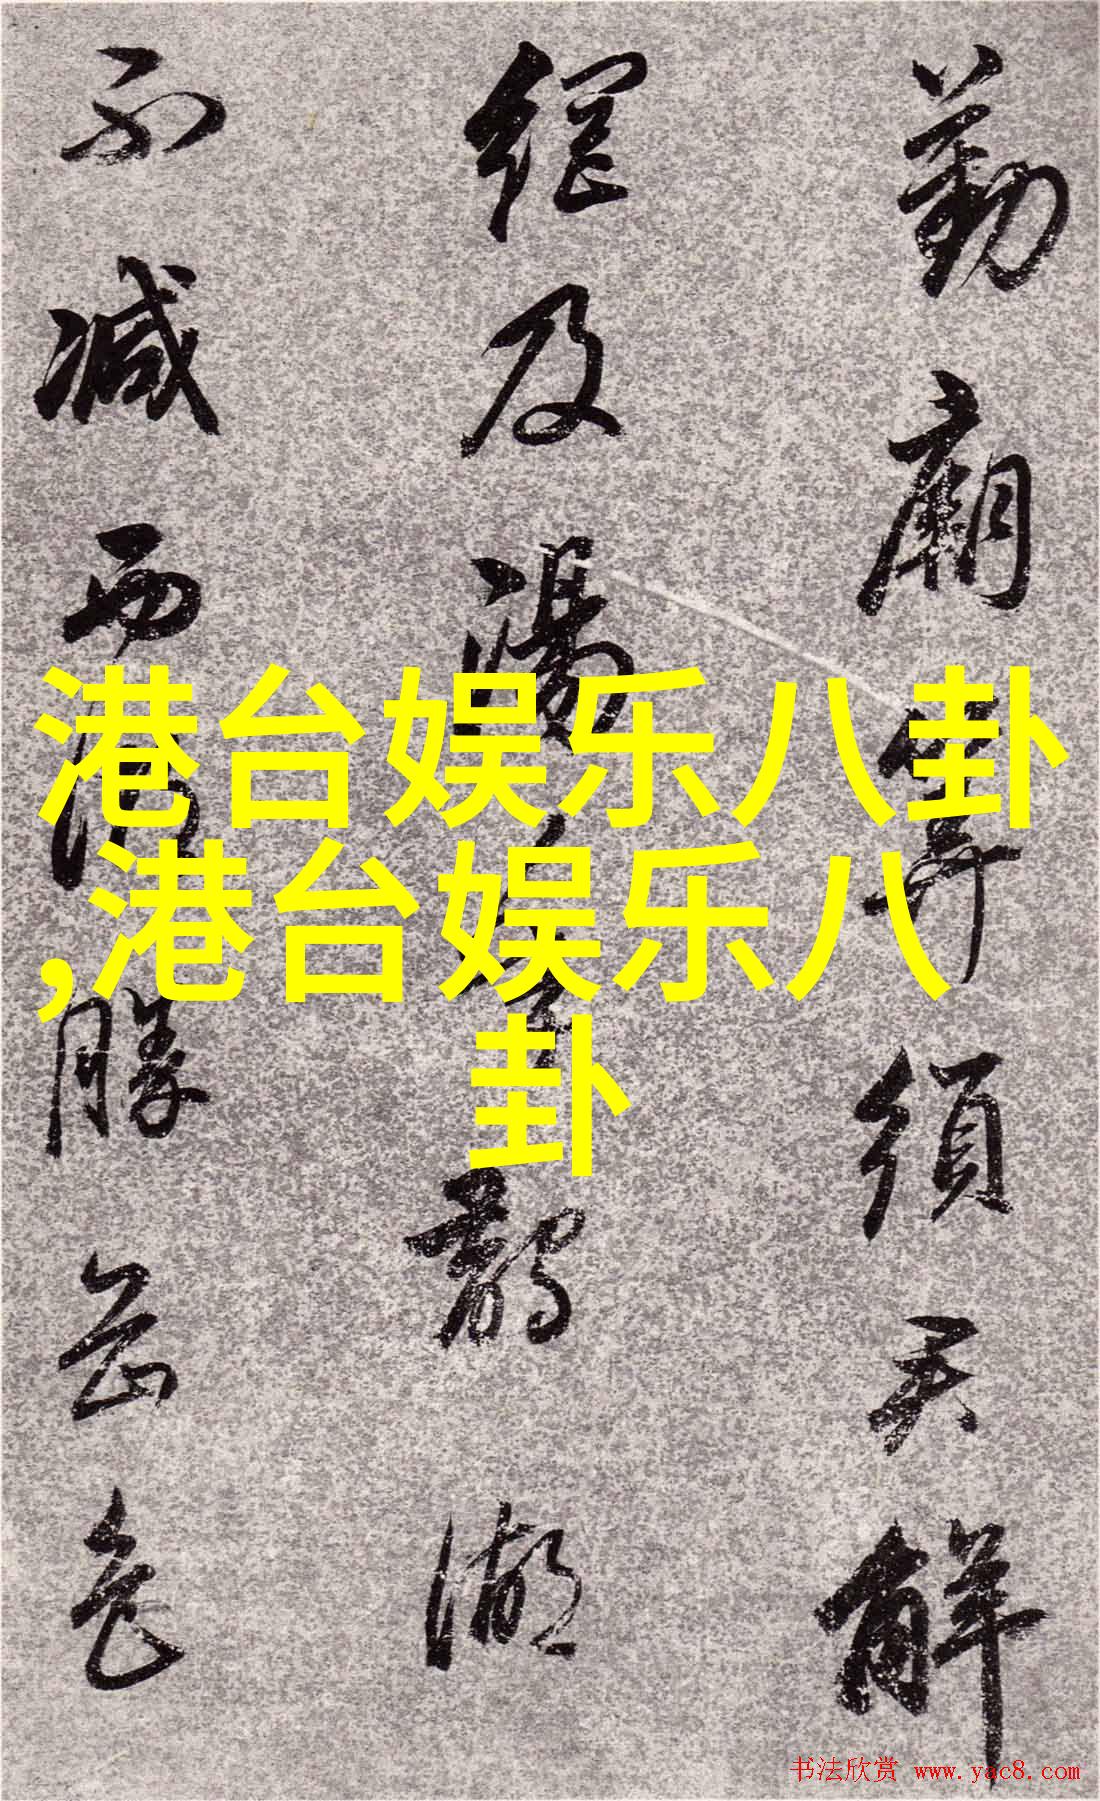 勤廟筭須天解
網及湯鵲湖
不減西湖勝色
港台娱乐八卦
,港台娱乐八
卦
书法欣赏 www.yac8.com